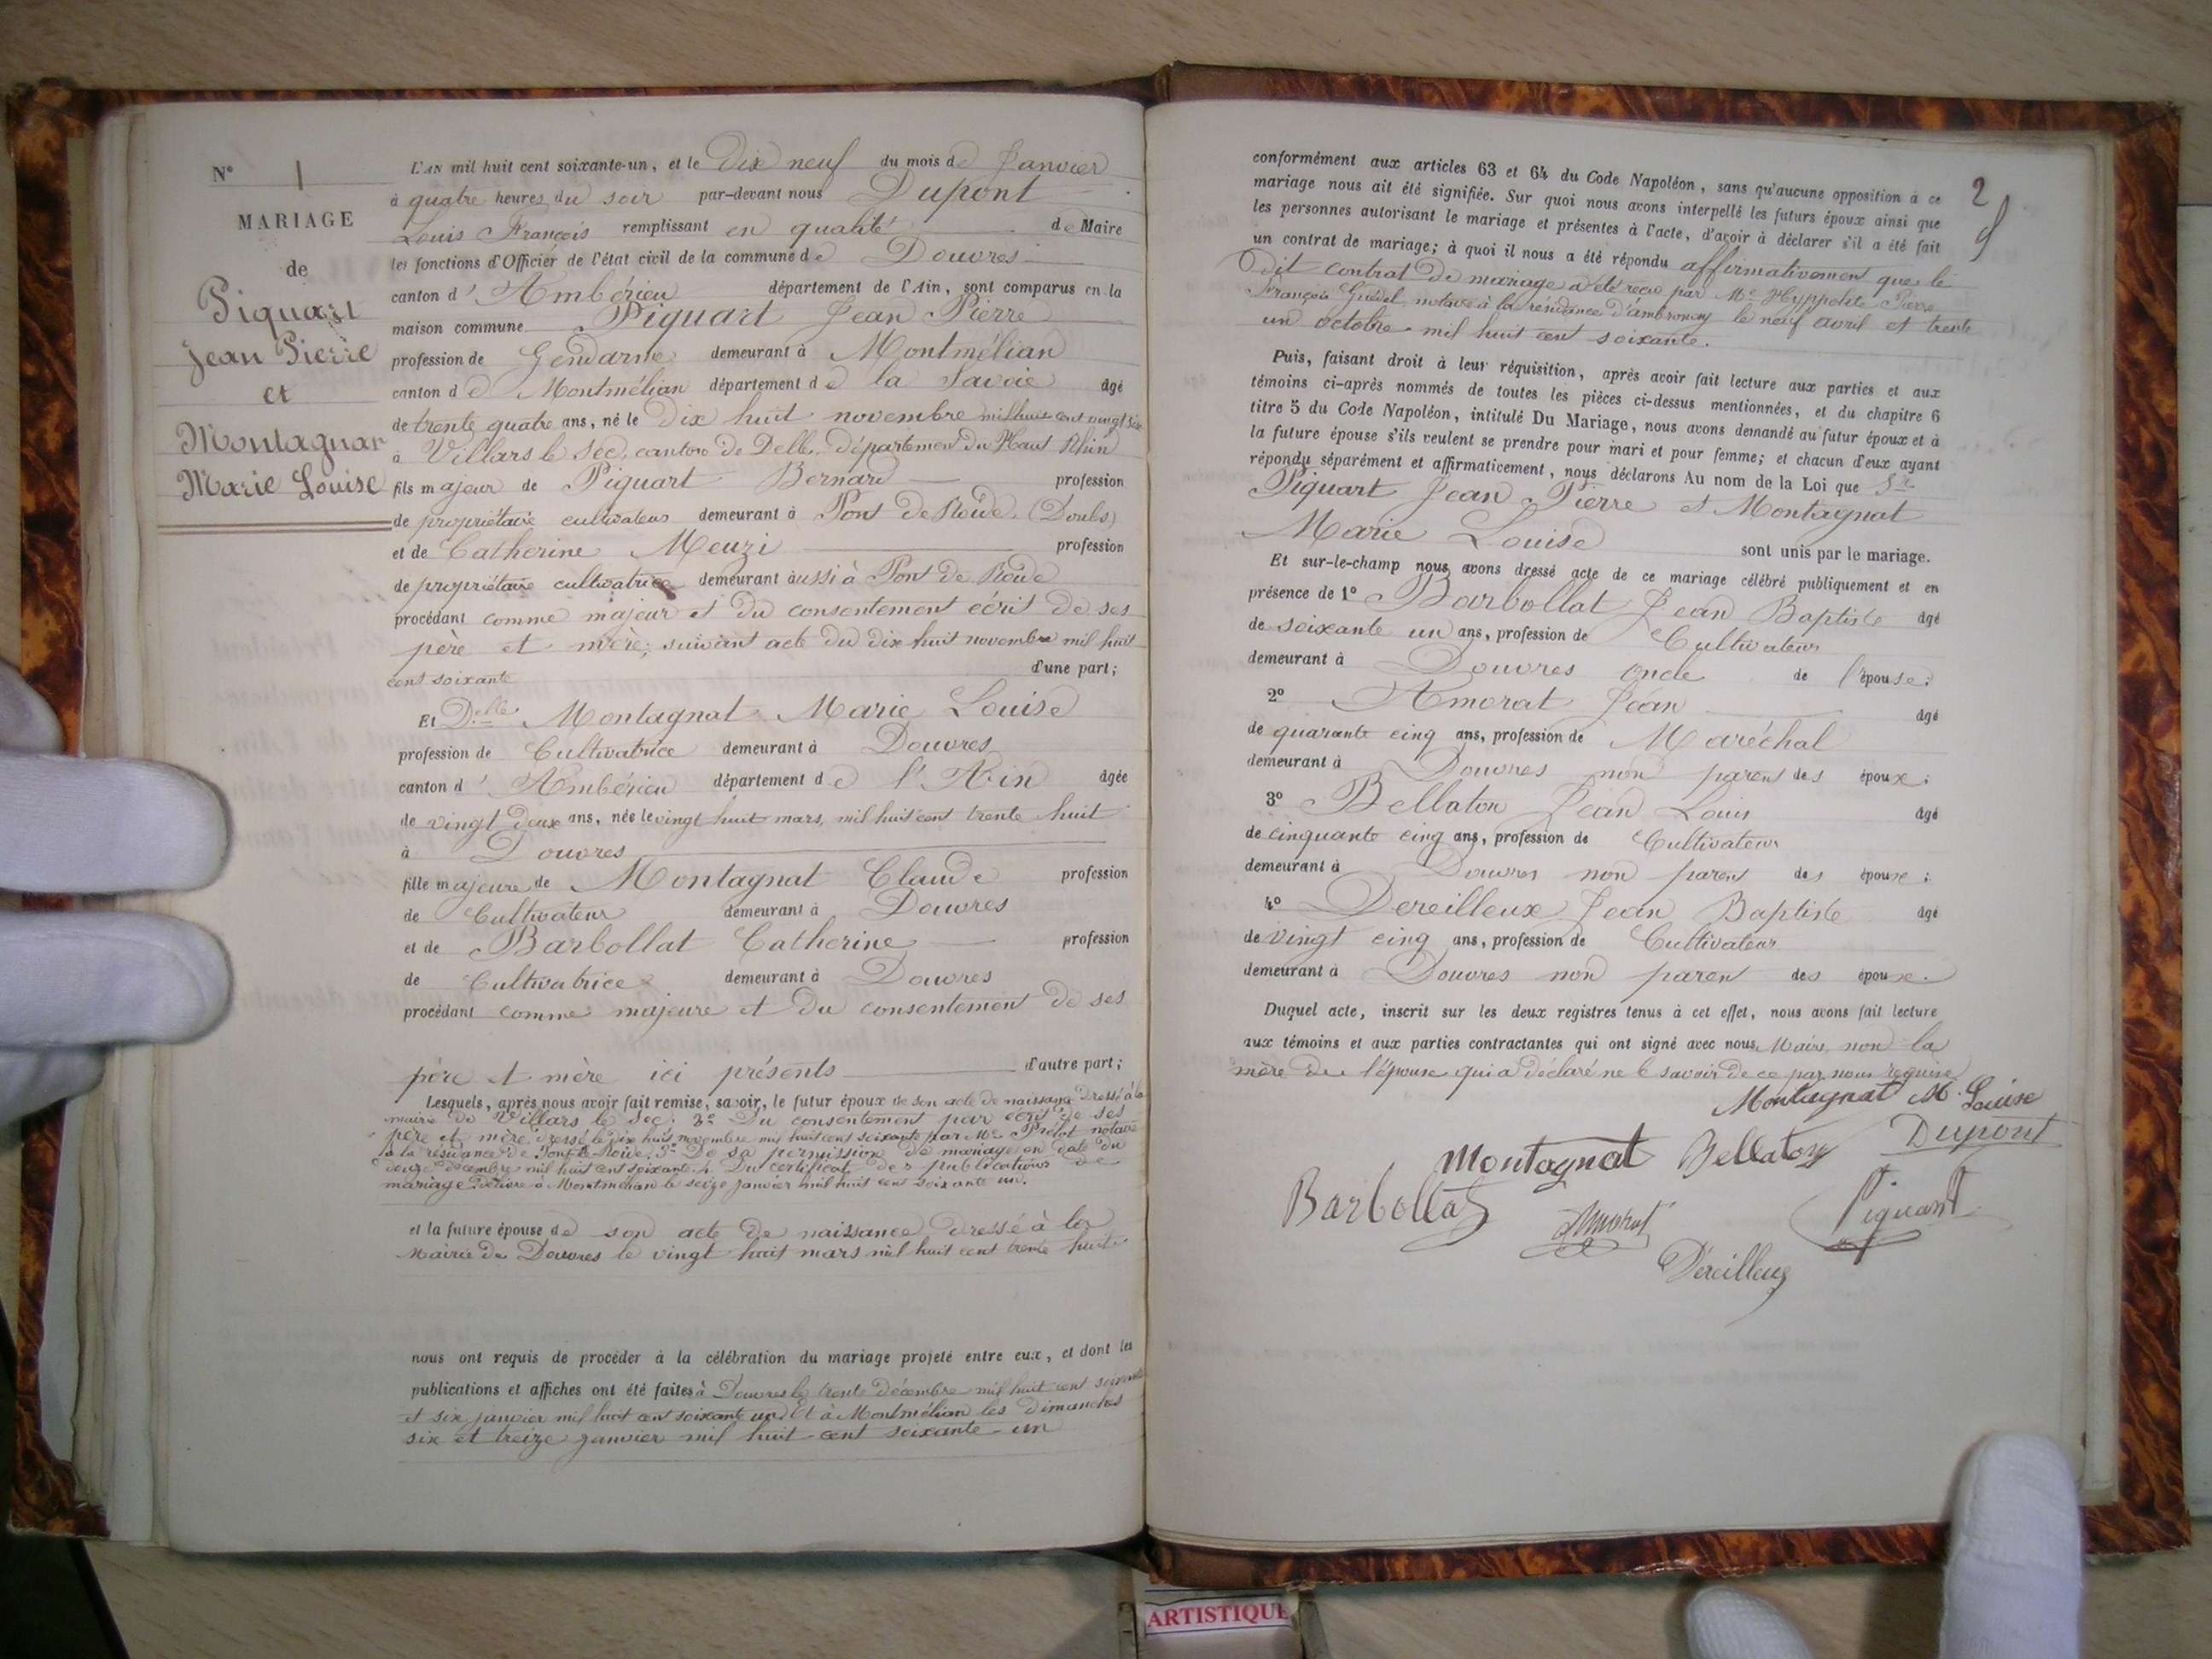 N° 1
MARIAGE
de
Piquart
Jean Pierre
et
Montagnat
Marie Louise
L'AN mil huit cent soixante-un, et le Dix neuf du mois de Janvier
à quatre heures du soir par-devant nous Dupont
Louis François remplissant en qualité de Maire
les fonctions d'Officier de l'état civil de la commune de Douvres
canton d'Ambérieu département de l'Ain, sont comparus en la
maison commune Piquart Jean Pierre
profession de Gendarme demeurant à Montmélian
canton de Montmélian département de la Savoie âgé
de trente quatre ans, né le Dix huit novembre mil huit cent vingt six
à Villars le Sec, canton de Delle, département du Haut Rhin
fils majeur de Piquart Bernard profession
de propriétaire cultivateur demeurant à Pont de Roide (Doubs)
et de Catherine Meuzi profession
de propriétaire cultivatrice demeurant aussi à Pont de Roide
procédant comme majeur et du consentement écrit de ses
père et mère; suivant acte du dix huit novembre mil huit
cent soixante d'une part;
Et Delle Montagnat Marie Louise
profession de Cultivatrice demeurant à Douvres
canton d'Ambérieu département de l'Ain âgée
de vingt deux ans, née le vingt huit mars, mil huit cent trente huit
à Douvres
fille majeure de Montagnat Claude profession
de Cultivateur demeurant à Douvres
et de Barbollat Catherine profession
de Cultivatrice demeurant à Douvres
procédant comme majeure et du consentement de ses
père et mère ici présents d'autre part;
Lesquels, après nous avoir fait remise, savoir, le futur époux de son acte de naissance dressé à la
mairie de Villars le Sec. 2° Du consentement par écrit de ses
père et mère dressé le dix huit novembre mil huit cent soixante par Me Prélot notaire
à la résidence de Pont de Roide. 3° De sa permission de mariage en date du
douze décembre mil huit cent soixante. 4 Du certificat des publications de
mariage délivré à Montmélian le seize janvier mil huit cent soixante un.
et la future épouse de son acte de naissance dressé à la
Mairie de Douvres le vingt huit mars mil huit cent trente huit.
nous ont requis de procéder à la célébration du mariage projeté entre eux, et dont les
publications et affiches ont été faites à Douvres le trente décembre mil huit cent soixante
et six janvier mil huit cent soixante un Et à Montmélian les dimanches
six et treize janvier mil huit cent soixante-un
2
conformément aux articles 63 et 64 du Code Napoléon, sans qu'aucune opposition à ce
mariage nous ait été signifiée. Sur quoi nous avons interpellé les futurs époux ainsi que
les personnes autorisant le mariage et présentes à l'acte, d'avoir à déclarer s'il a été fait
un contrat de mariage; à quoi il nous a été répondu affirmativement que le
dit contrat de mariage a été reçu par Me Hyppolite Pierre
François Guédel, notaire à la résidence d'ambronay le neuf avril et trente
un octobre mil huit cent soixante.
Puis, faisant droit à leur réquisition, après avoir fait lecture aux parties et aux
témoins ci-après nommés de toutes les pièces ci-dessus mentionnées, et du chapitre 6
titre 5 du Code Napoléon, intitulé Du Mariage, nous avons demandé au futur époux et à
la future épouse s'ils veulent se prendre pour mari et pour femme; et chacun d'eux ayant
répondu séparément et affirmativement, nous déclarons Au nom de la Loi que Sr
Piquart Jean Pierre et Montagnat
Marie Louise sont unis par le mariage.
Et sur-le-champ nous avons dressé acte de ce mariage célébré publiquement et en
présence de 1° Barbollat Jean Baptiste âgé
de soixante un ans, profession de Cultivateur
demeurant à Douvres oncle de l'épouse;
2° Amorat Jean âgé
de quarante cinq ans, profession de Maréchal
demeurant à Douvres non parent des époux;
3° Bellaton Jean Louis âgé
de cinquante cinq ans, profession de Cultivateur
demeurant à Douvres non parent des époux;
4° Dereilleux Jean Baptiste âgé
de vingt cinq ans, profession de Cultivateur
demeurant à Douvres non parent des époux.
Duquel acte, inscrit sur les deux registres tenus à cet effet, nous avons fait lecture
aux témoins et aux parties contractantes qui ont signé avec nous Maire, non la
mère de l'épouse qui a déclaré ne le savoir de ce par nous requise
Montagnat M. Louise
Montagnat Bellaton Dupont
Barbollat Amorat Piquart
Dereilleux
ARTISTIQUE